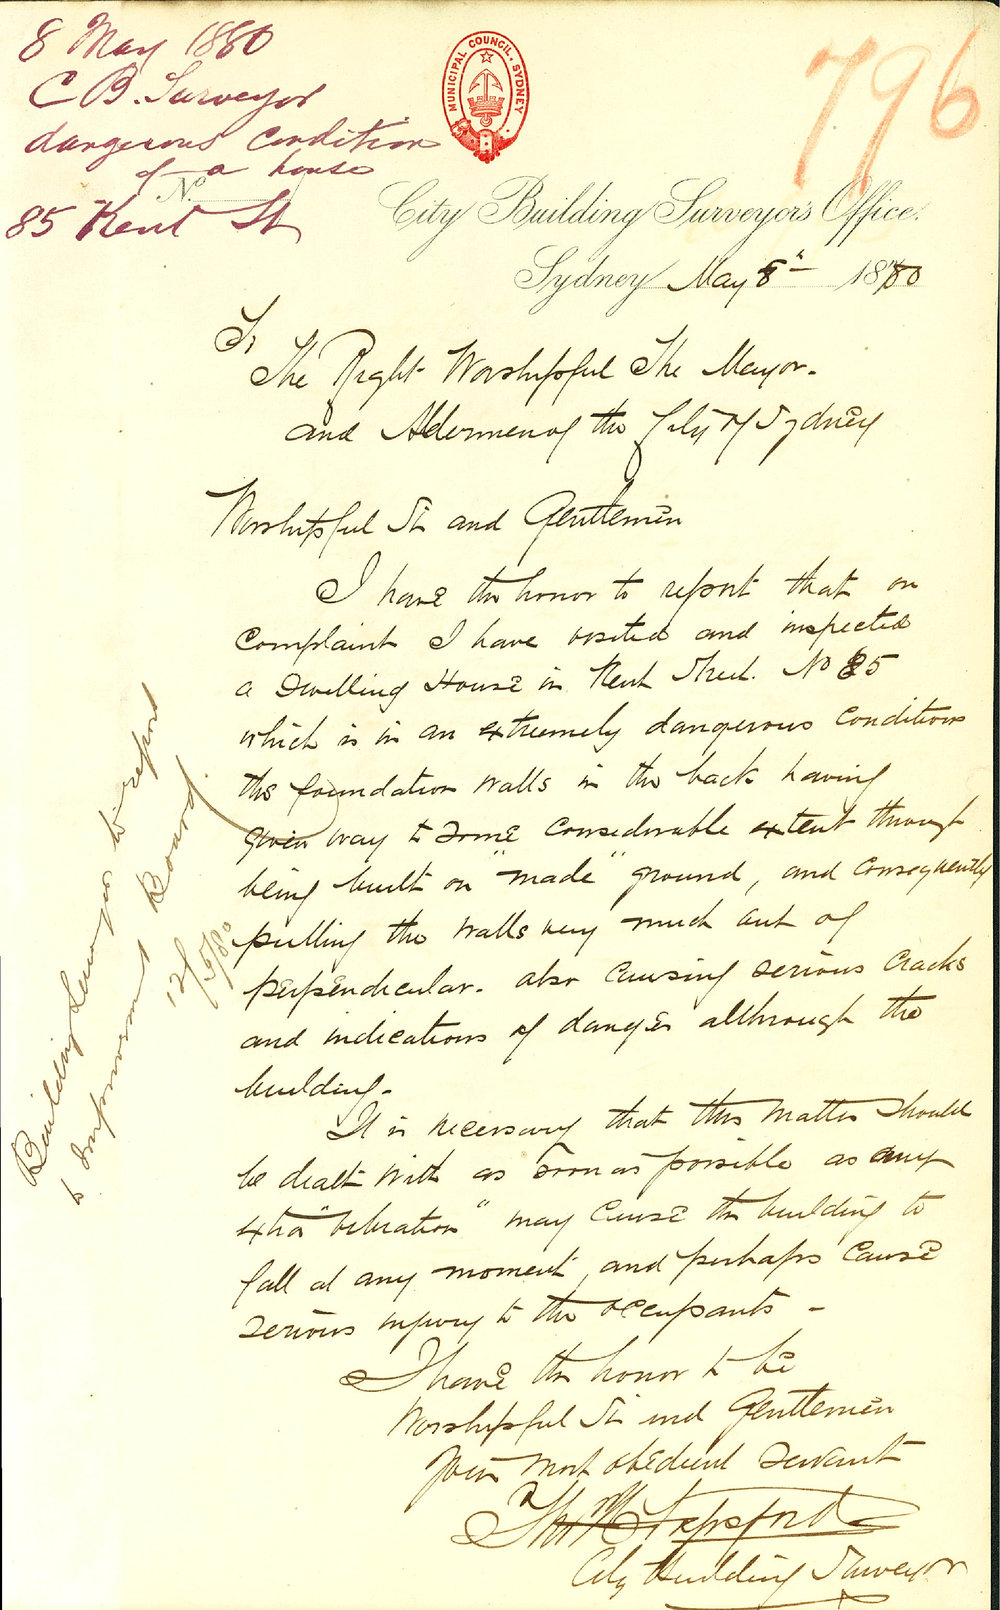 8 May 1880
C B. Surveyor
dangerous condition
of a house
No.
85 Kent St
MUNICIPAL COUNCIL, SYDNEY
796
City Building Surveyor's Office.
Sydney May 8th 1880
To
The Right Worshipful The Mayor.
and Aldermen of the City of Sydney
Worshipful Sir and Gentlemen
I have the honor to report that on
Complaint I have visited and inspected
a Dwelling House in Kent Street. No 85
which is in an extremely dangerous Condition
the foundation walls in the back having
given way to some considerable extent through
being built on "made" ground, and consequently
pulling the walls very much out of
perpendicular. also Causing serious Cracks
and indications of danger allthrough the
building.
It is necessary that this matter should
be dealt with as soon as possible as any
extra "vibration" may Cause the building to
fall at any moment, and perhaps Cause
serious injury to the occupants -
I have the honor to be
Worshipful Sir and Gentlemen
Your most obedient servant
City Building Surveyor
Building Surveyor to report
to Improvement Board.
12/5/80